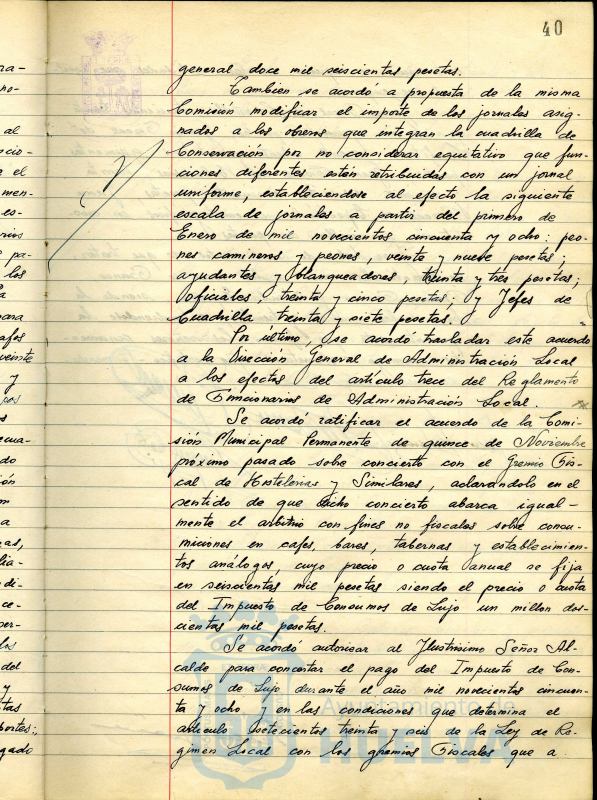 40
general doce mil seiscientas pesetas.
Tambien se acordó a propuesta de la misma
Comisión modificar el importe de los jornales asig-
nados a los obreros que integran la cuadrilla de
Conservación por no considerar equitativo que fun-
ciones diferentes estén retribuidas con un jornal
uniforme, estableciendose al efecto la siguiente
escala de jornales a partir del primero de
Enero de mil novecientos cincuenta y ocho: peo-
nes camineros y peones, veinte y nueve pesetas;
ayudantes y blanqueadores, treinta y tres pesetas;
oficiales, treinta y cinco pesetas; y Jefes de
Cuadrilla treinta y siete pesetas.
Por último, se acordó trasladar este acuerdo
a la Dirección General de Administración Local
a los efectos del artículo trece del Reglamento
de Funcionarios de Administración Local.
Se acordó ratificar el acuerdo de la Comi-
sión Municipal Permanente de quince de Noviembre
próximo pasado sobre concierto con el Gremio Fis-
cal de Hostelerias y Similares, aclarandolo en el
sentido de que dicho concierto abarca igual-
mente el arbitrio con fines no fiscales sobre consu-
miciones en cafes, bares, tabernas y establecimien-
tos análogos, cuyo precio o cuota anual se fija
en seiscientas mil pesetas siendo el precio o cuota
del Impuesto de Consumos de Lujo un millon dos-
cientas mil pesetas.
Se acordó autorizar al Ilustrísimo Señor Al-
calde para concertar el pago del Impuesto de Con-
sumos de Lujo durante el año mil novecientos cincuen-
ta y ocho y en las condiciones que determina el
artículo setecientos treinta y seis de la Ley de Ré-
gimen Local con los gremios Fiscales que a